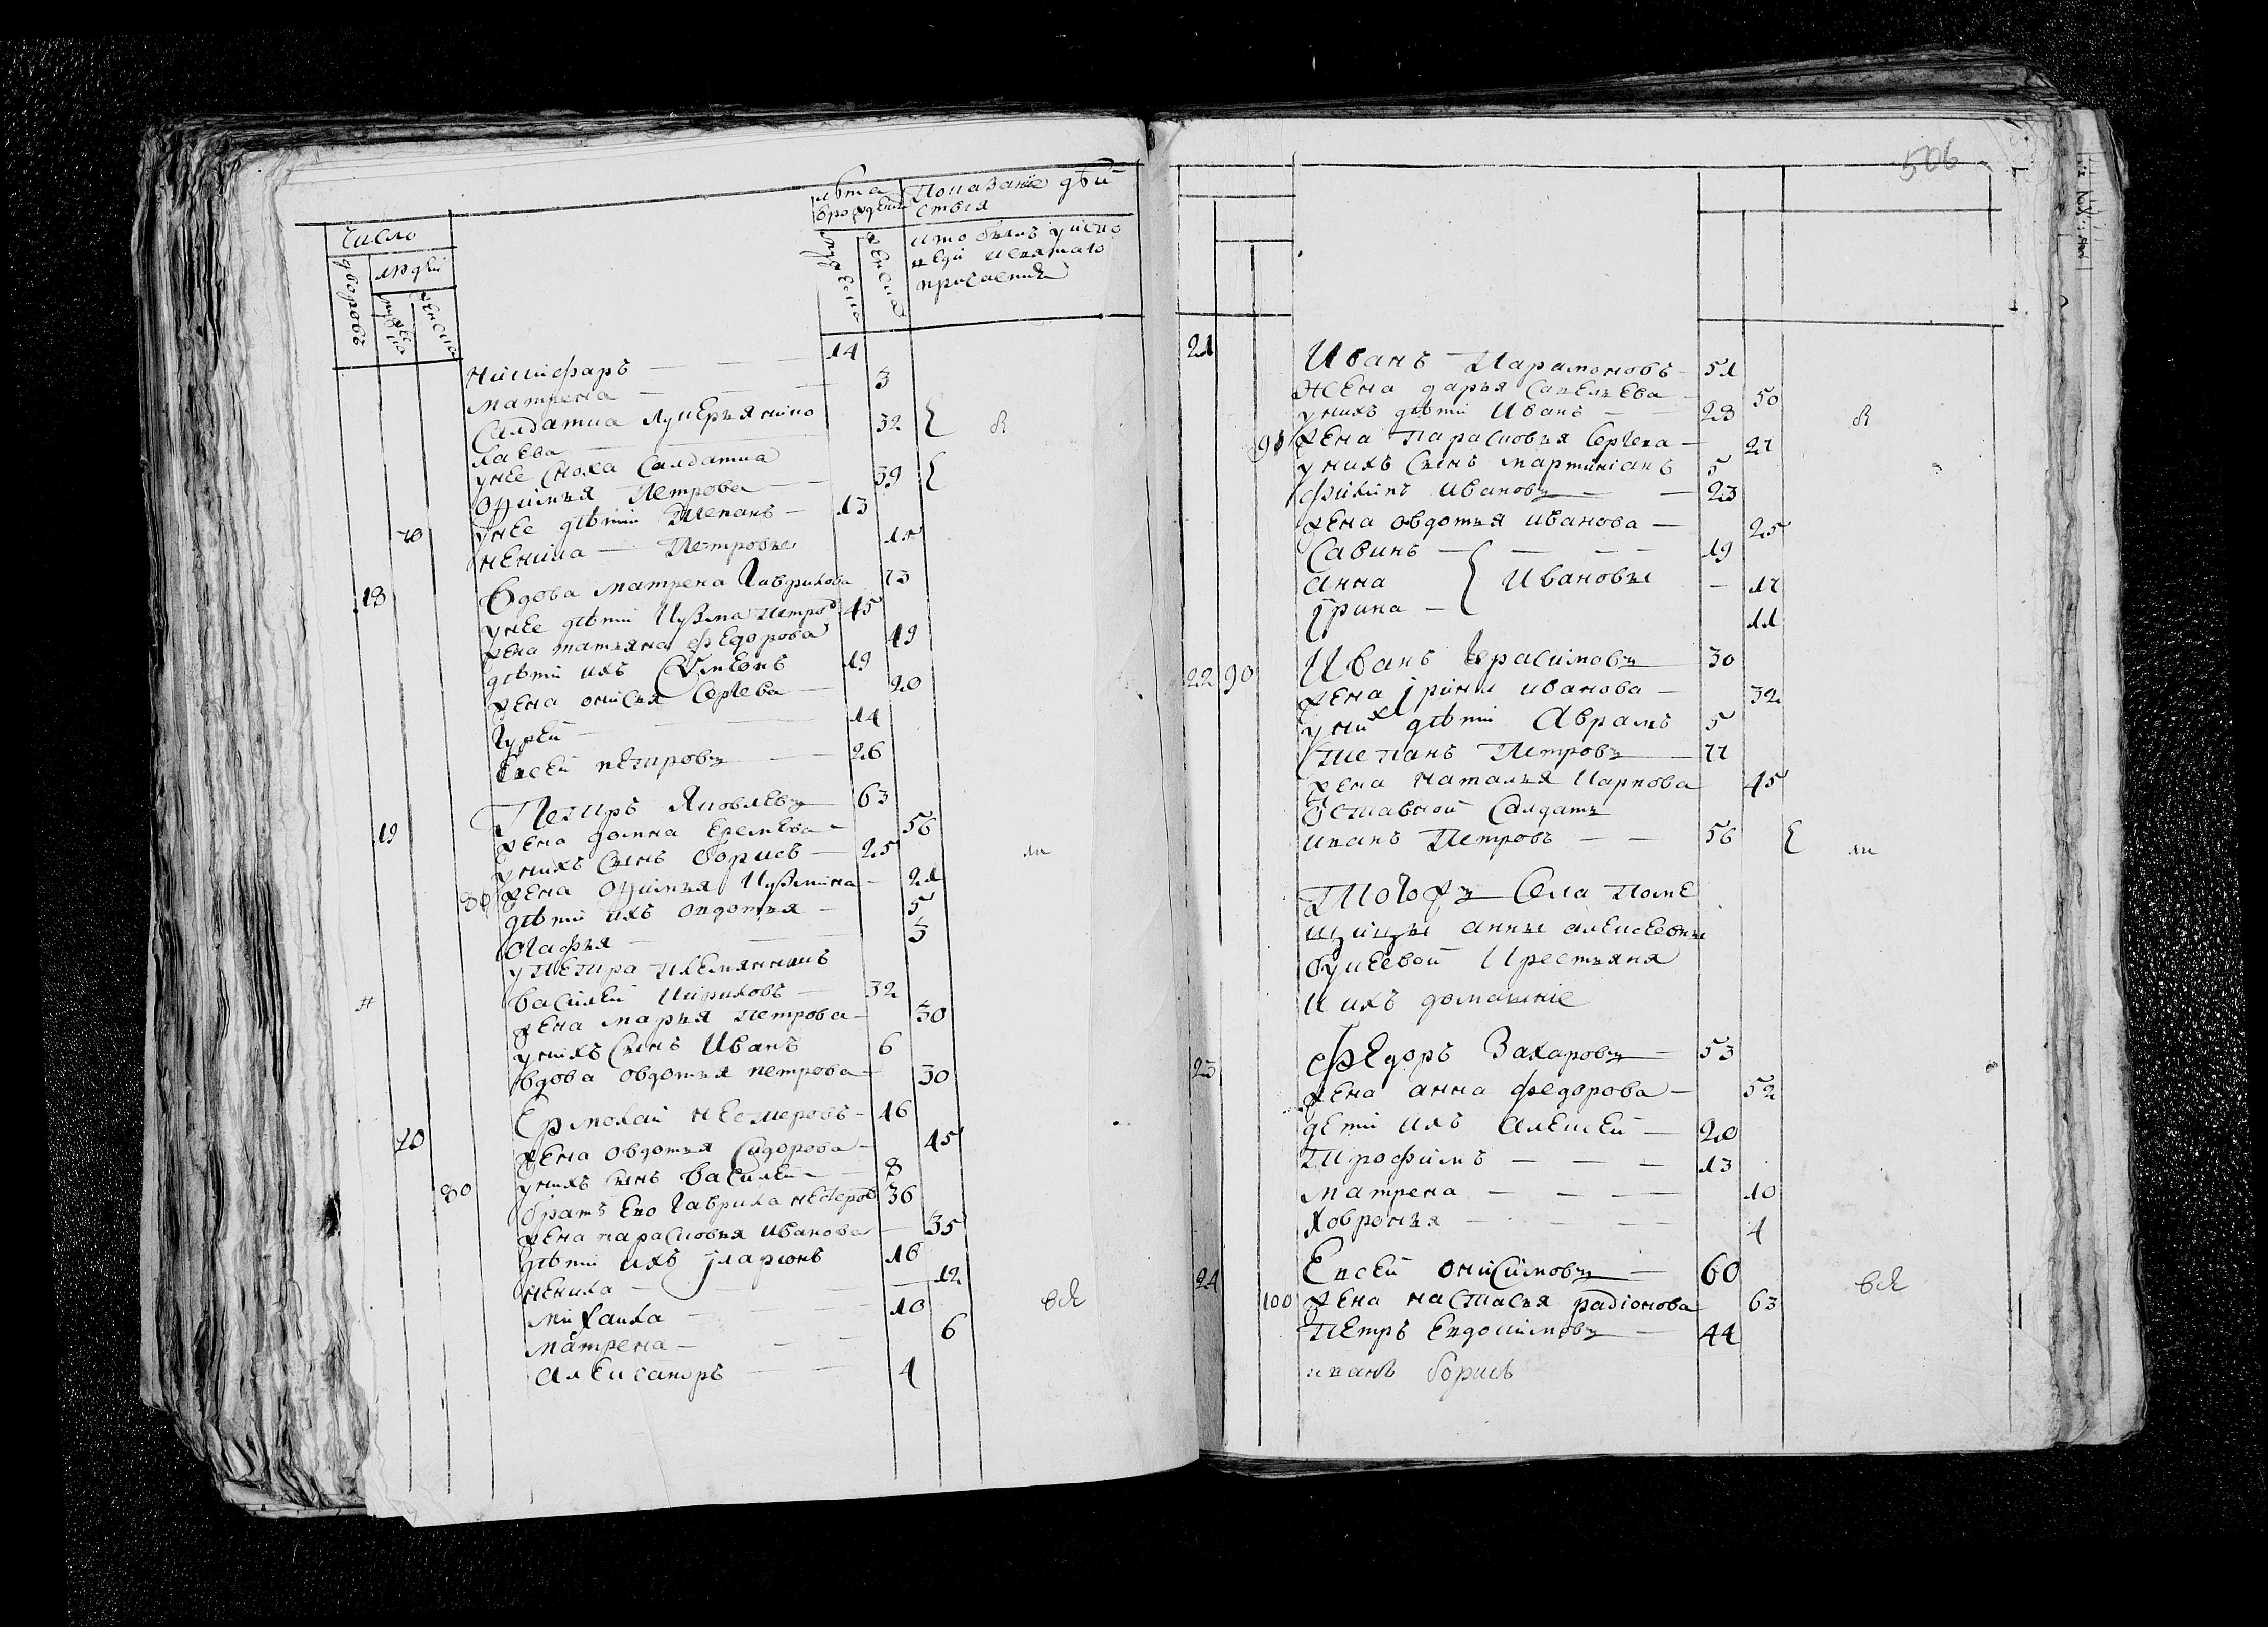 число
дворовъ
людей
мужеска
женска
лѣта
врожденiя
мужеска
женска
Показанiе дѣй
ствiя
кто былъ уиспо
веди исвятаго
причастия
никифаръ — 14
матрена — 3
Салдатка Лукерья нико
лаева — 32
унее сноха салдатка
Офимья Петрова — 39
70 унее дѣти Степанъ — 13
ненила — Петровы 15
18 Вдова матрена Гаврилова 73
унее дѣти Кузма петровъ 45
жена татьяна федорова 49
дѣти ихъ Симеонъ 19
жена онисья Сергева — 20
Гурей — 14
Евсей петровъ — 26
19 Петръ Яковлевъ 63
жена домна еремева — 56
унихъ сынъ борисъ — 25
80 жена офимья Кузмина — 21
дѣти ихъ овдотья — 5
Огафья — 3
упетра племянникъ
василей Кириловъ — 32
жена марья петрова — 30
унихъ сынъ Иванъ 6
вдова овдотья петрова — 30
20 Ермолай нестеровъ — 46
жена овдотья Сидорова — 45
унихъ сынъ василей — 8
80 братъ Его Гаврила нестеровъ 36
жена парасковья иванова — 35
дѣти ихъ Iларионъ 16
ненила — 12
михаила — 10
матрена — 6
александръ — 4
вся
506
21 Иванъ Парамоновъ — 51
жена дарья савельева — 50
унихъ дѣти Иванъ — 28
90 жена парасковья Сергева — 27
унихъ сынъ мартинiанъ 5
филипъ ивановъ — 23
жена овдотья иванова — 25
Савинъ — 19
анна Ивановы — 17
Iрина — 11
22 90 Иванъ Герасимовъ 30
жена Iрина иванова — 32
унихъ дѣти Аврамъ 5
Степанъ Петровъ 77
жена наталья Карпова 45
Отставной Салдатъ
иванъ Петровъ — 56
Тогожъ Села Поме
щицы анны алексевны
букеевой Крестьяня
И ихъ домашнiе
23 Федоръ Захаровъ — 53
жена анна федорова — 52
дети ихъ алексей — 20
Трофимъ — 13
матрена — 10
Ховронья — 4
24 Евсей онисимовъ — 60
100 жена настасья радiонова 63
Петръ Евдокимовъ — 44
иванъ борисъ
вся